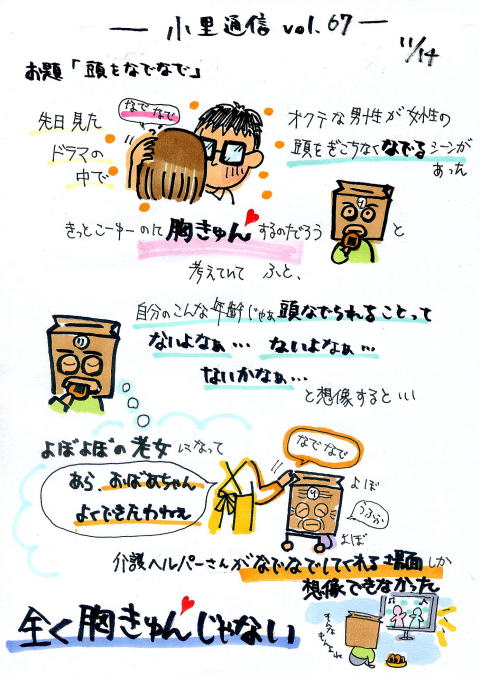 小里通信 vol.67
11/14
お題「頭をなでなで」
先日見た
ドラマの
中で
なでなで
オクテな男性が女性の
頭をぎこちなくなでるシーンが
あった
きっとこーゆーのに胸きゅんするのだろう と
考えていて ふと、
自分のこんな年齢じゃぁ頭なでられることって
ないよなぁ… ないよなぁ…
ないかなぁ…
と想像すると…
よぼよぼの老女になって
あら、おばあちゃん
よくできたわねぇ
なでなで
よぼ
うふふ
よぼ
介護ヘルパーさんがなでなでしてくれる場面しか
想像できなかった
全く胸きゅんじゃない